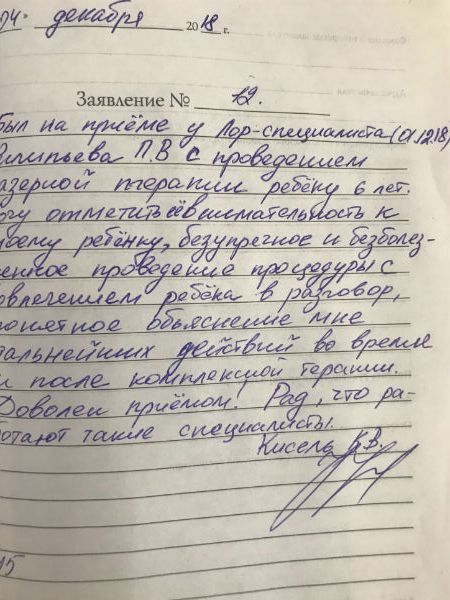 04. декабря 2018 г.
Заявление № 12.
был на приёме у Лор-специалиста (01.12.18)
П.В с проведением
азерной терапии ребёнку 6 лет.
огу отметить её внимательность к
моему ребёнку, безупречное и безболез-
ненное проведение процедуры с
овлечением ребёнка в разговор,
понятное объяснение мне
дальнейших действий во время
и после комплексной терапии.
Доволен приёмом! Рад, что ра-
ботают такие специалисты.
Кисель К.В.
15